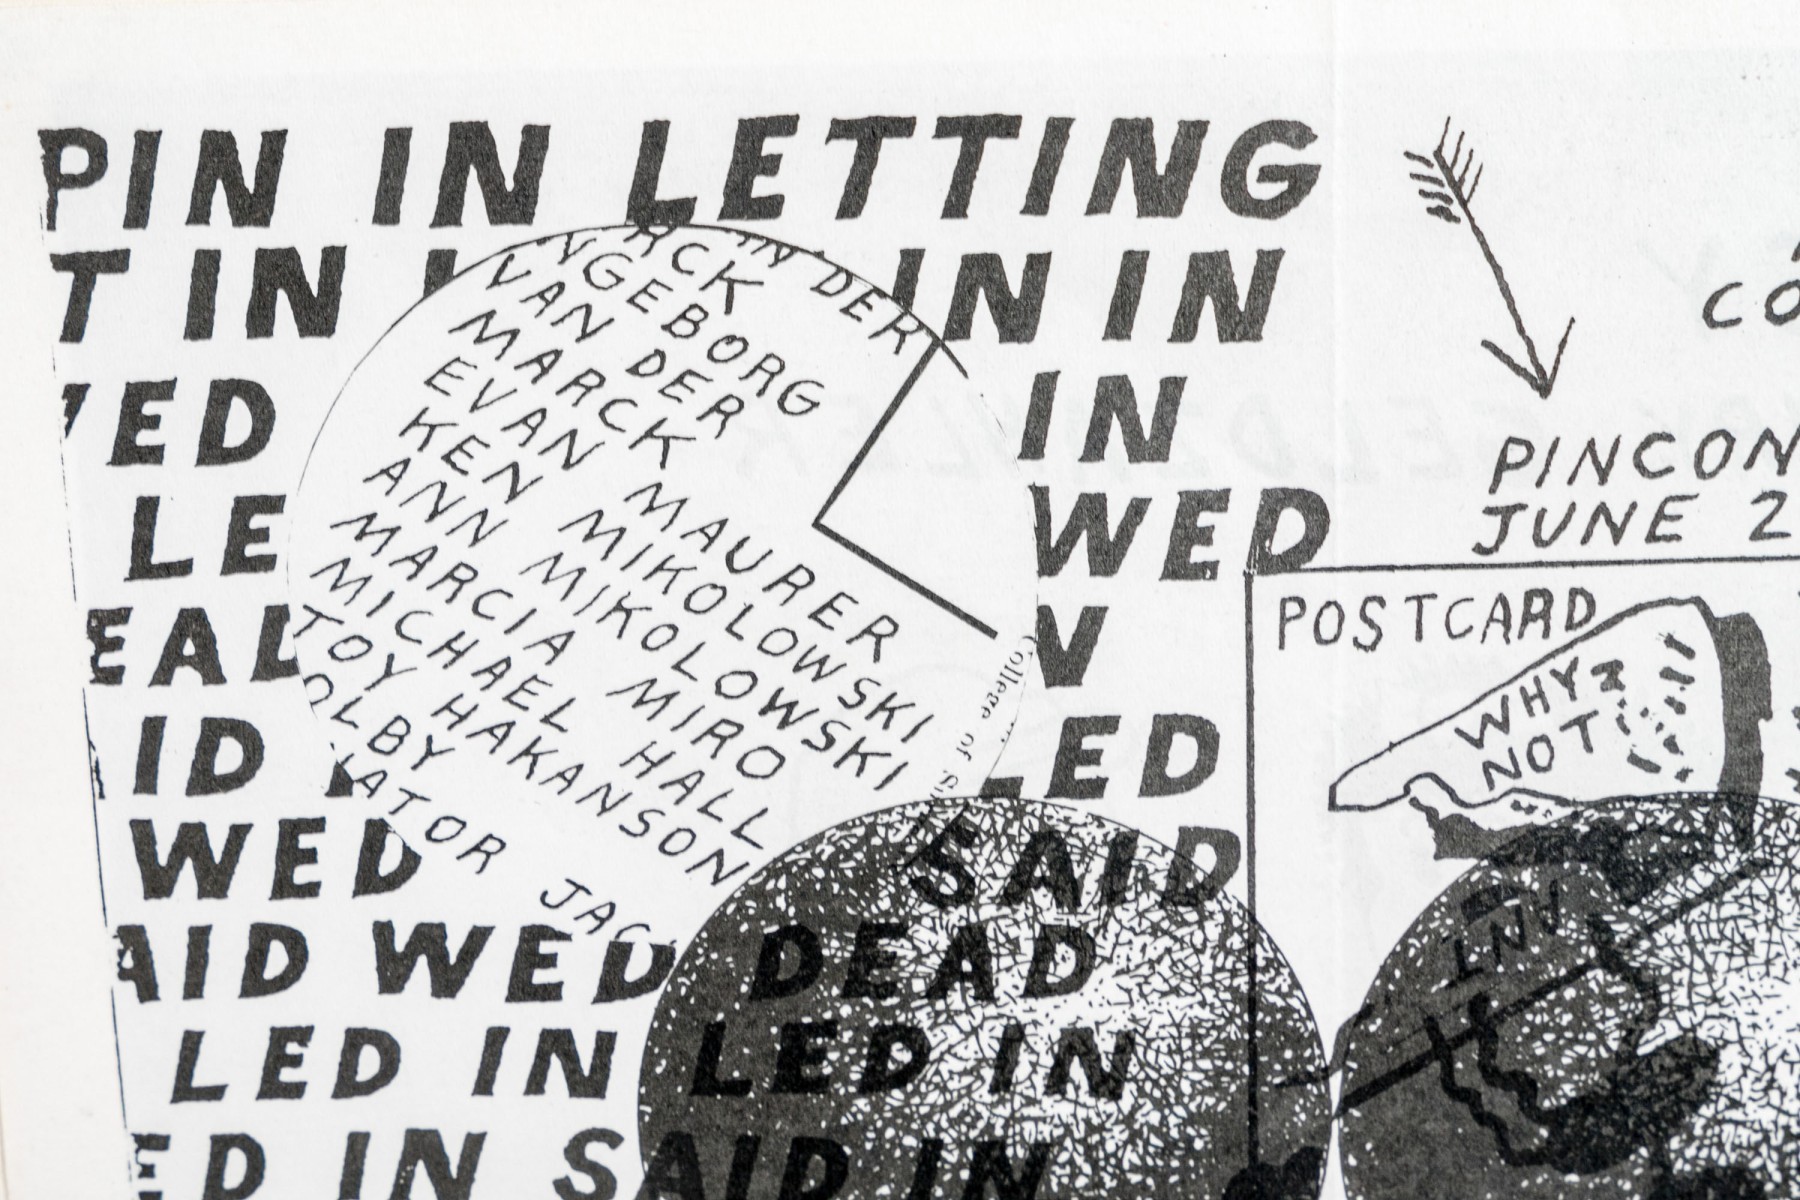 PIN IN LETTING
T IN IN IN
ED IN
LE WED
EAL
ID LED
WED SAID
AID WED DEAD
LED IN LED IN
ED IN SAID IN
RCK IN DER
NGEBORG
VAN DER
MARCK
EVAN MAURER
KEN MIKOLOWSKI
ANN MIKOLOWSKI
MARCIA MIRO
MICHAEL HALL
TOY HAKANSON
OLBY
ATOR JAC
College of
CO
PINCON
JUNE 2
POSTCARD
WHY
NOT
ANT